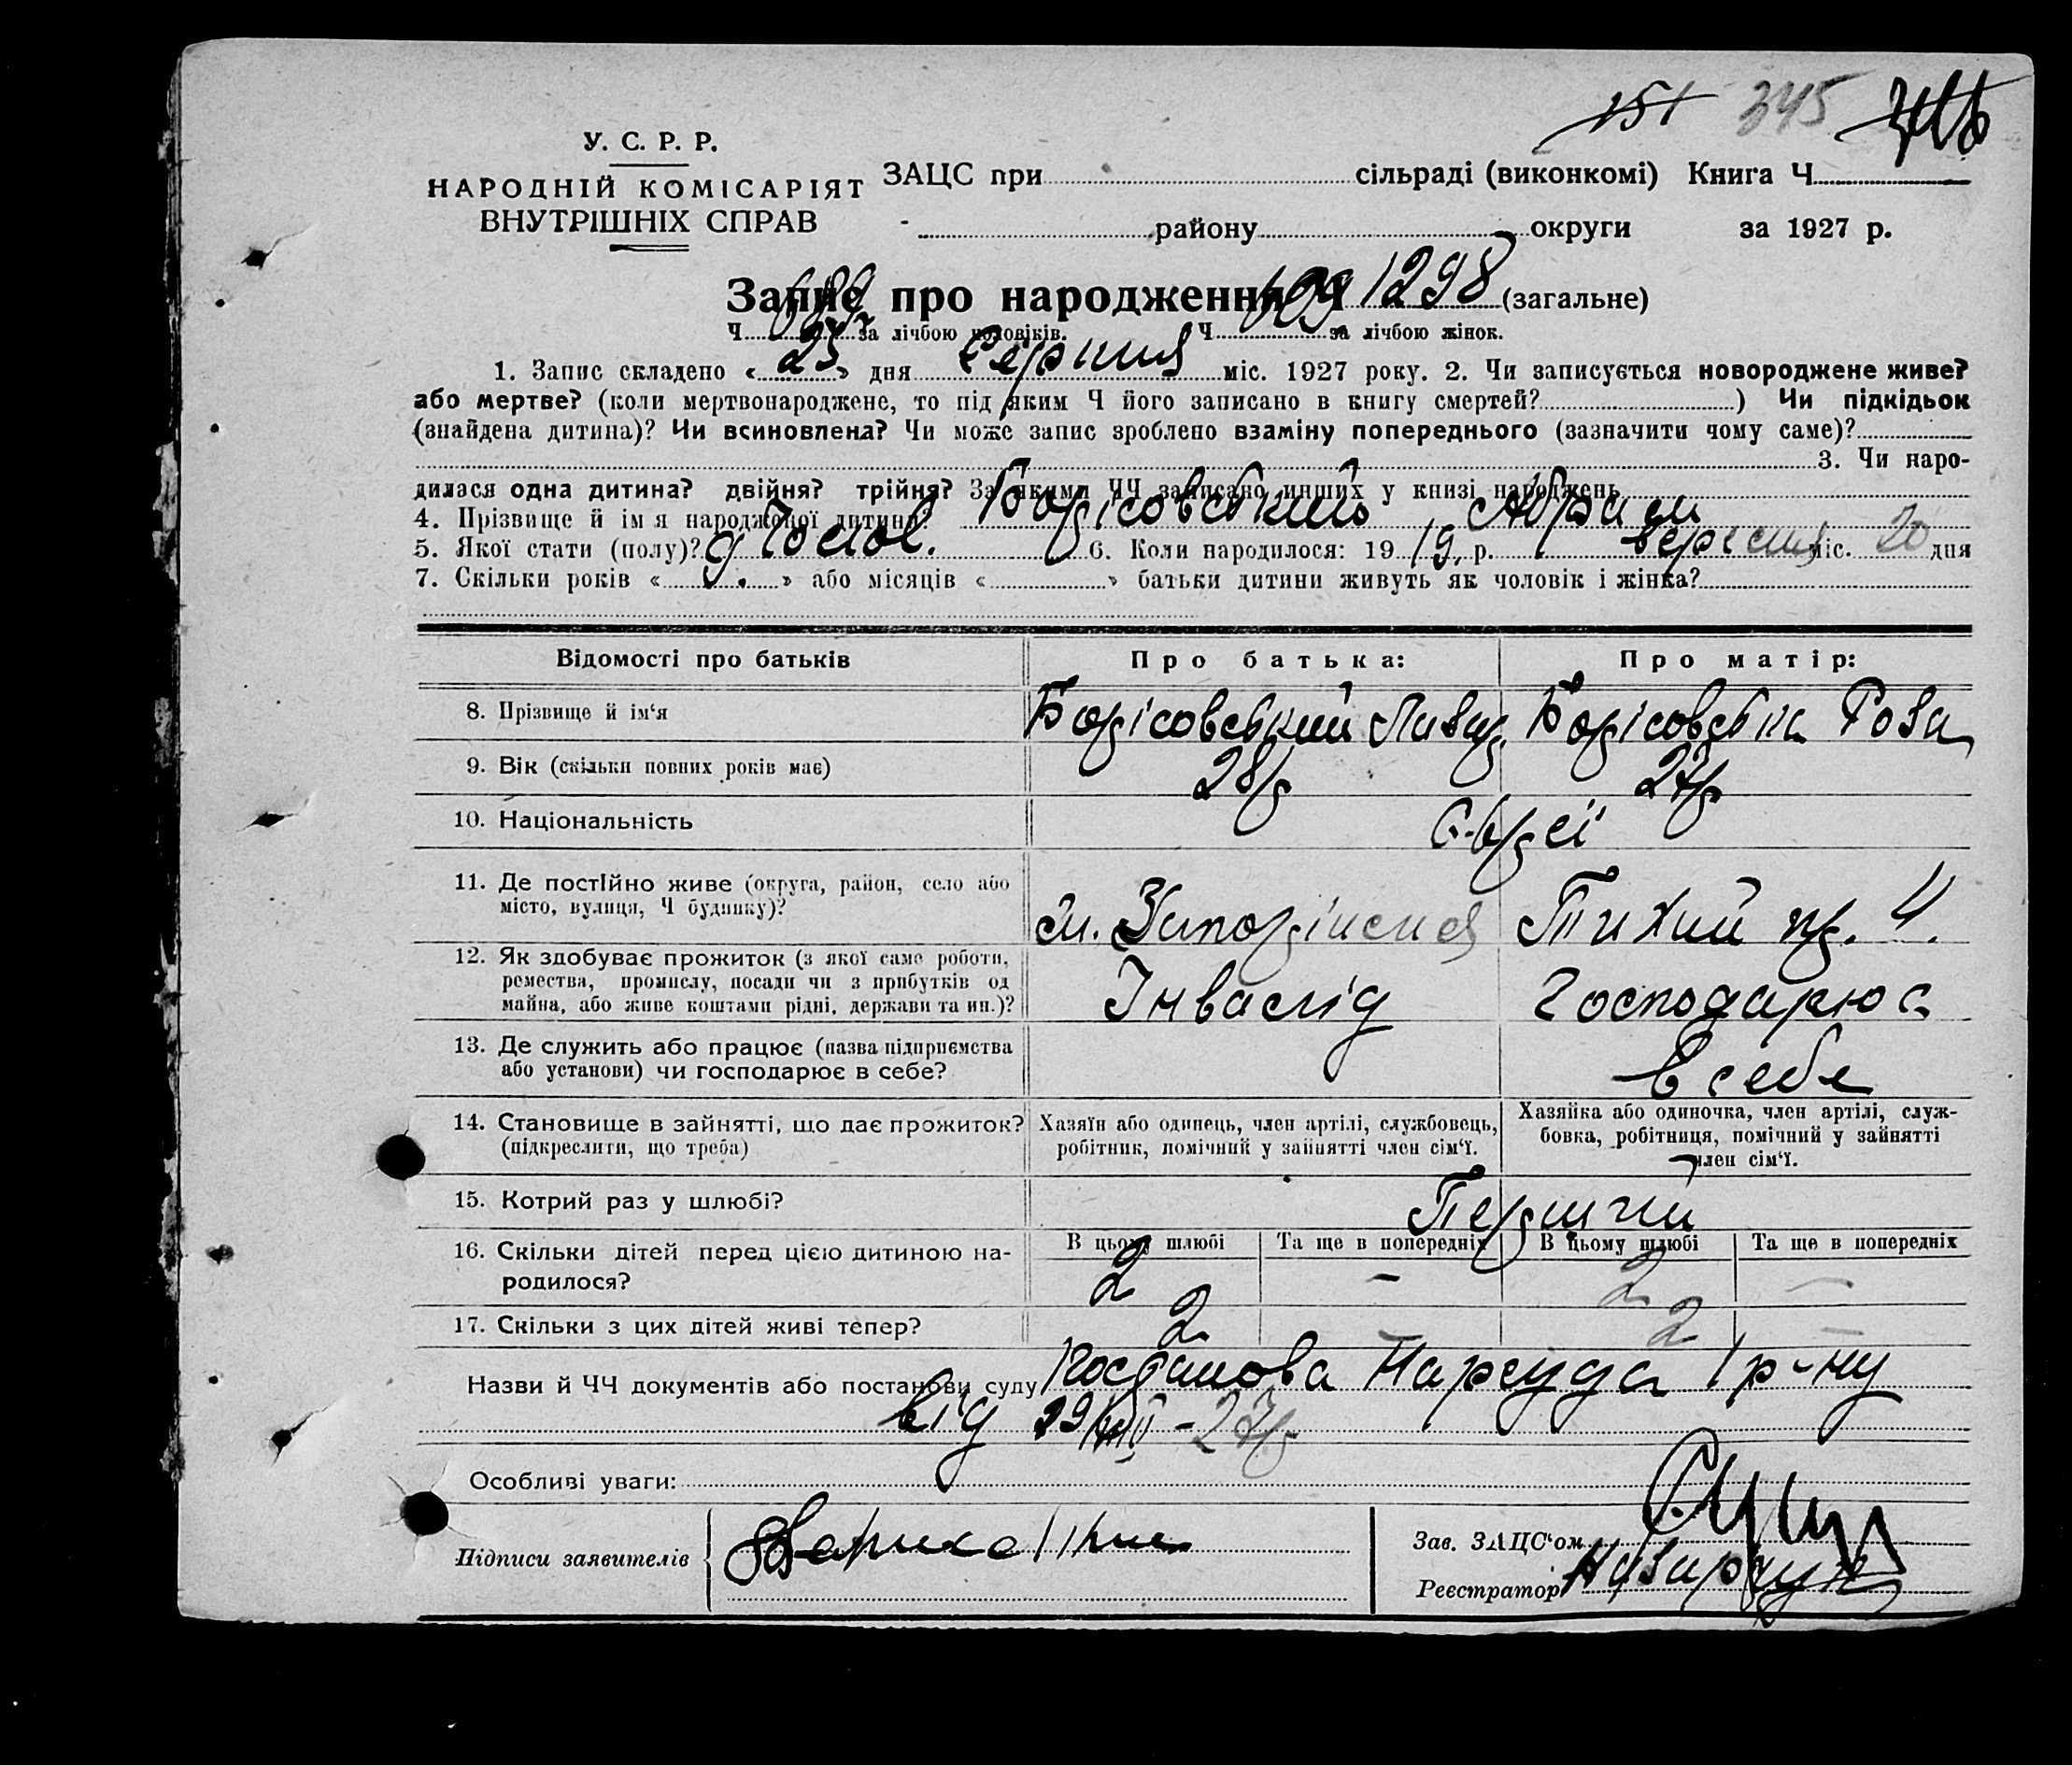 151 345
У. С. Р. Р.
НАРОДНІЙ КОМІСАРІЯТ
ВНУТРІШНІХ СПРАВ
ЗАЦС при сільраді (виконкомі) Книга Ч
району округи за 1927 р.
Запис про народження Ч 1298 (загальне)
Ч 689 за лічбою чоловіків. Ч 609 за лічбою жінок.
1. Запис складено « 25 » дня Серпня міс. 1927 року. 2. Чи записується новороджене живе?
або мертве? (коли мертвонароджене, то під яким Ч його записано в книгу смертей? ) Чи підкідьок
(знайдена дитина)? Чи всиновлена? Чи може запис зроблено взаміну попереднього (зазначити чому саме)?
3. Чи наро-
дилася одна дитина? двійня? трійня? За якими ЧЧ записано инших у книзі народжень
4. Прізвище й ім'я народженої дитини? Борісовський Абрам
5. Якої стати (полу)? чолов. 6. Коли народилося: 19 19 р. вересня міс. 20 дня
7. Скільки років « 9. » або місяців « » батьки дитини живуть як чоловік і жінка?
Відомості про батьків Про батька: Про матір:
8. Прізвище й ім'я Борісовський Борісовська Роза
9. Вік (скільки повних років має) 28р 27р
10. Національність Євреї
11. Де постійно живе (округа, район, село або
місто, вулиця, Ч будинку)? м. Запоріжжя Тихий пр. 4.
12. Як здобуває прожиток (з якої саме роботи,
ремества, промислу, посади чи з прибутків од
майна, або живе коштами рідні, держави та ин.)? Інвалід Господарює
13. Де служить або працює (назва підприємства
або установи) чи господарює в себе? в себе
14. Становище в зайнятті, що дає прожиток? Хазяїн або одинець, член артілі, службовець, Хазяйка або одиночка, член артілі, служ-
(підкреслити, що треба) робітник, помічний у зайнятті член сім'ї. бовка, робітниця, помічний у зайнятті
член сім'ї.
15. Котрий раз у шлюбі? Перший
16. Скільки дітей перед цією дитиною на- В цьому шлюбі Та ще в попередніх В цьому шлюбі Та ще в попередніх
родилося? 2 – 2 –
17. Скільки з цих дітей живі тепер? 2 2 –
Назви й ЧЧ документів або постанови суду Постанова Нарсуда 1 р-ну
від 29/VIII-27р
Особливі уваги:
Підписи заявителів Зав. ЗАЦС'ом
Реєстратор